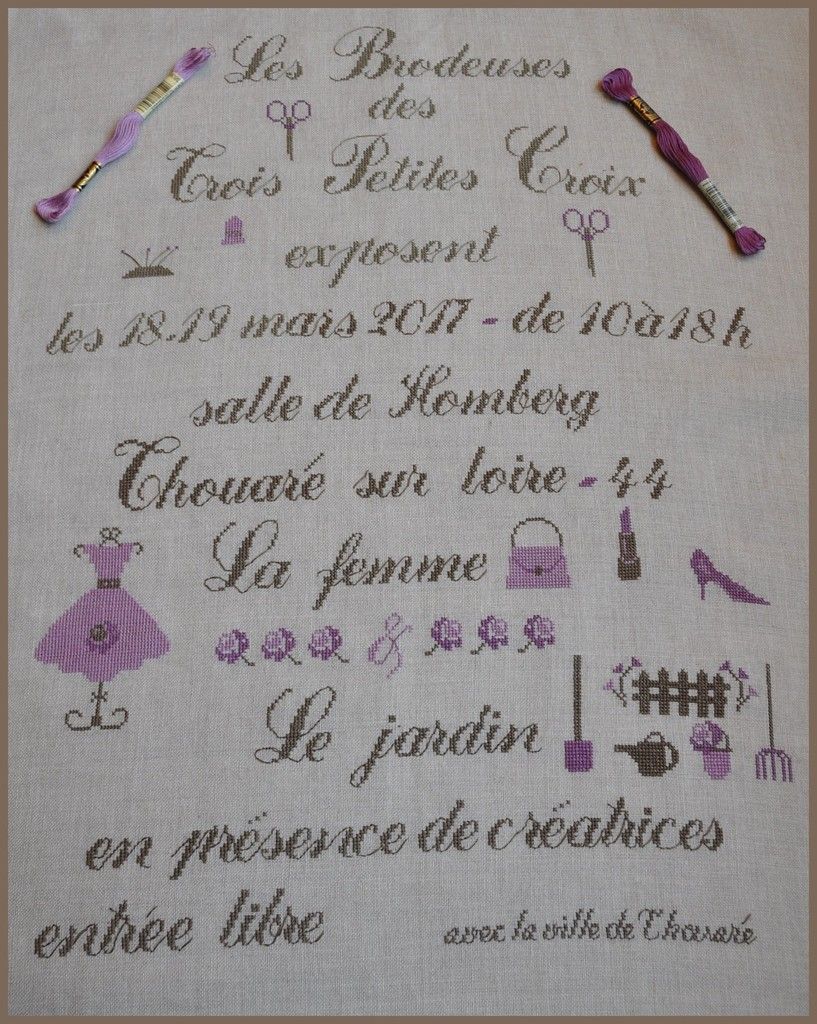 Les Brodeuses
des
Trois Petites Croix
exposent
les 18.19 mars 2017 - de 10 à 18 h
salle de Homberg
Thouaré sur loire - 44
La femme
&
Le jardin
en prësence de crëatrices
entrée libre
avec la ville de Thouaré